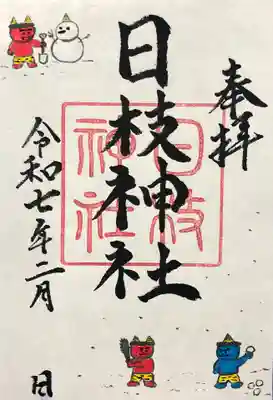 奉拝
日枝神社
日枝
神社
令和七年二月 日